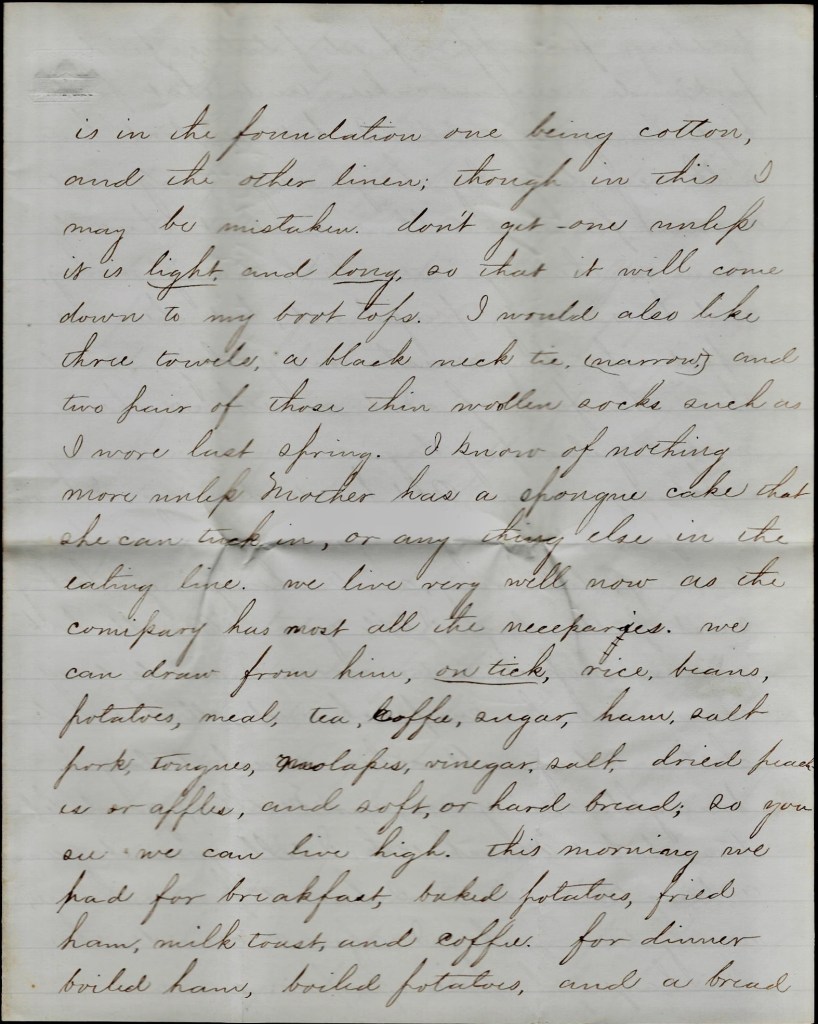 is in the foundation one being cotton,
and the other linen; though in this I
may be mistaken. don't get one unless
it is light and long, so that it will come
down to my boot tops. I would also like
three towels, a black neck tie, (narrow,) and
two pair of those thin woolen socks such as
I wore last spring. I know of nothing
more unless Mother has a spongue cake that
she can tuck in, or any thing else in the
eating line. we live very well now as the
comissary has most all the necessaries. we
can draw from him, on tick, rice, beans,
potatoes, meal, tea, coffee, sugar, ham, salt
pork, tongues, molasses, vinegar, salt, dried peach
es or apples, and soft, or hard bread; so you
see we can live high. this morning we
had for breakfast, baked potatoes, fried
ham, milk toast, and coffee. for dinner
boiled ham, boiled potatoes, and a bread